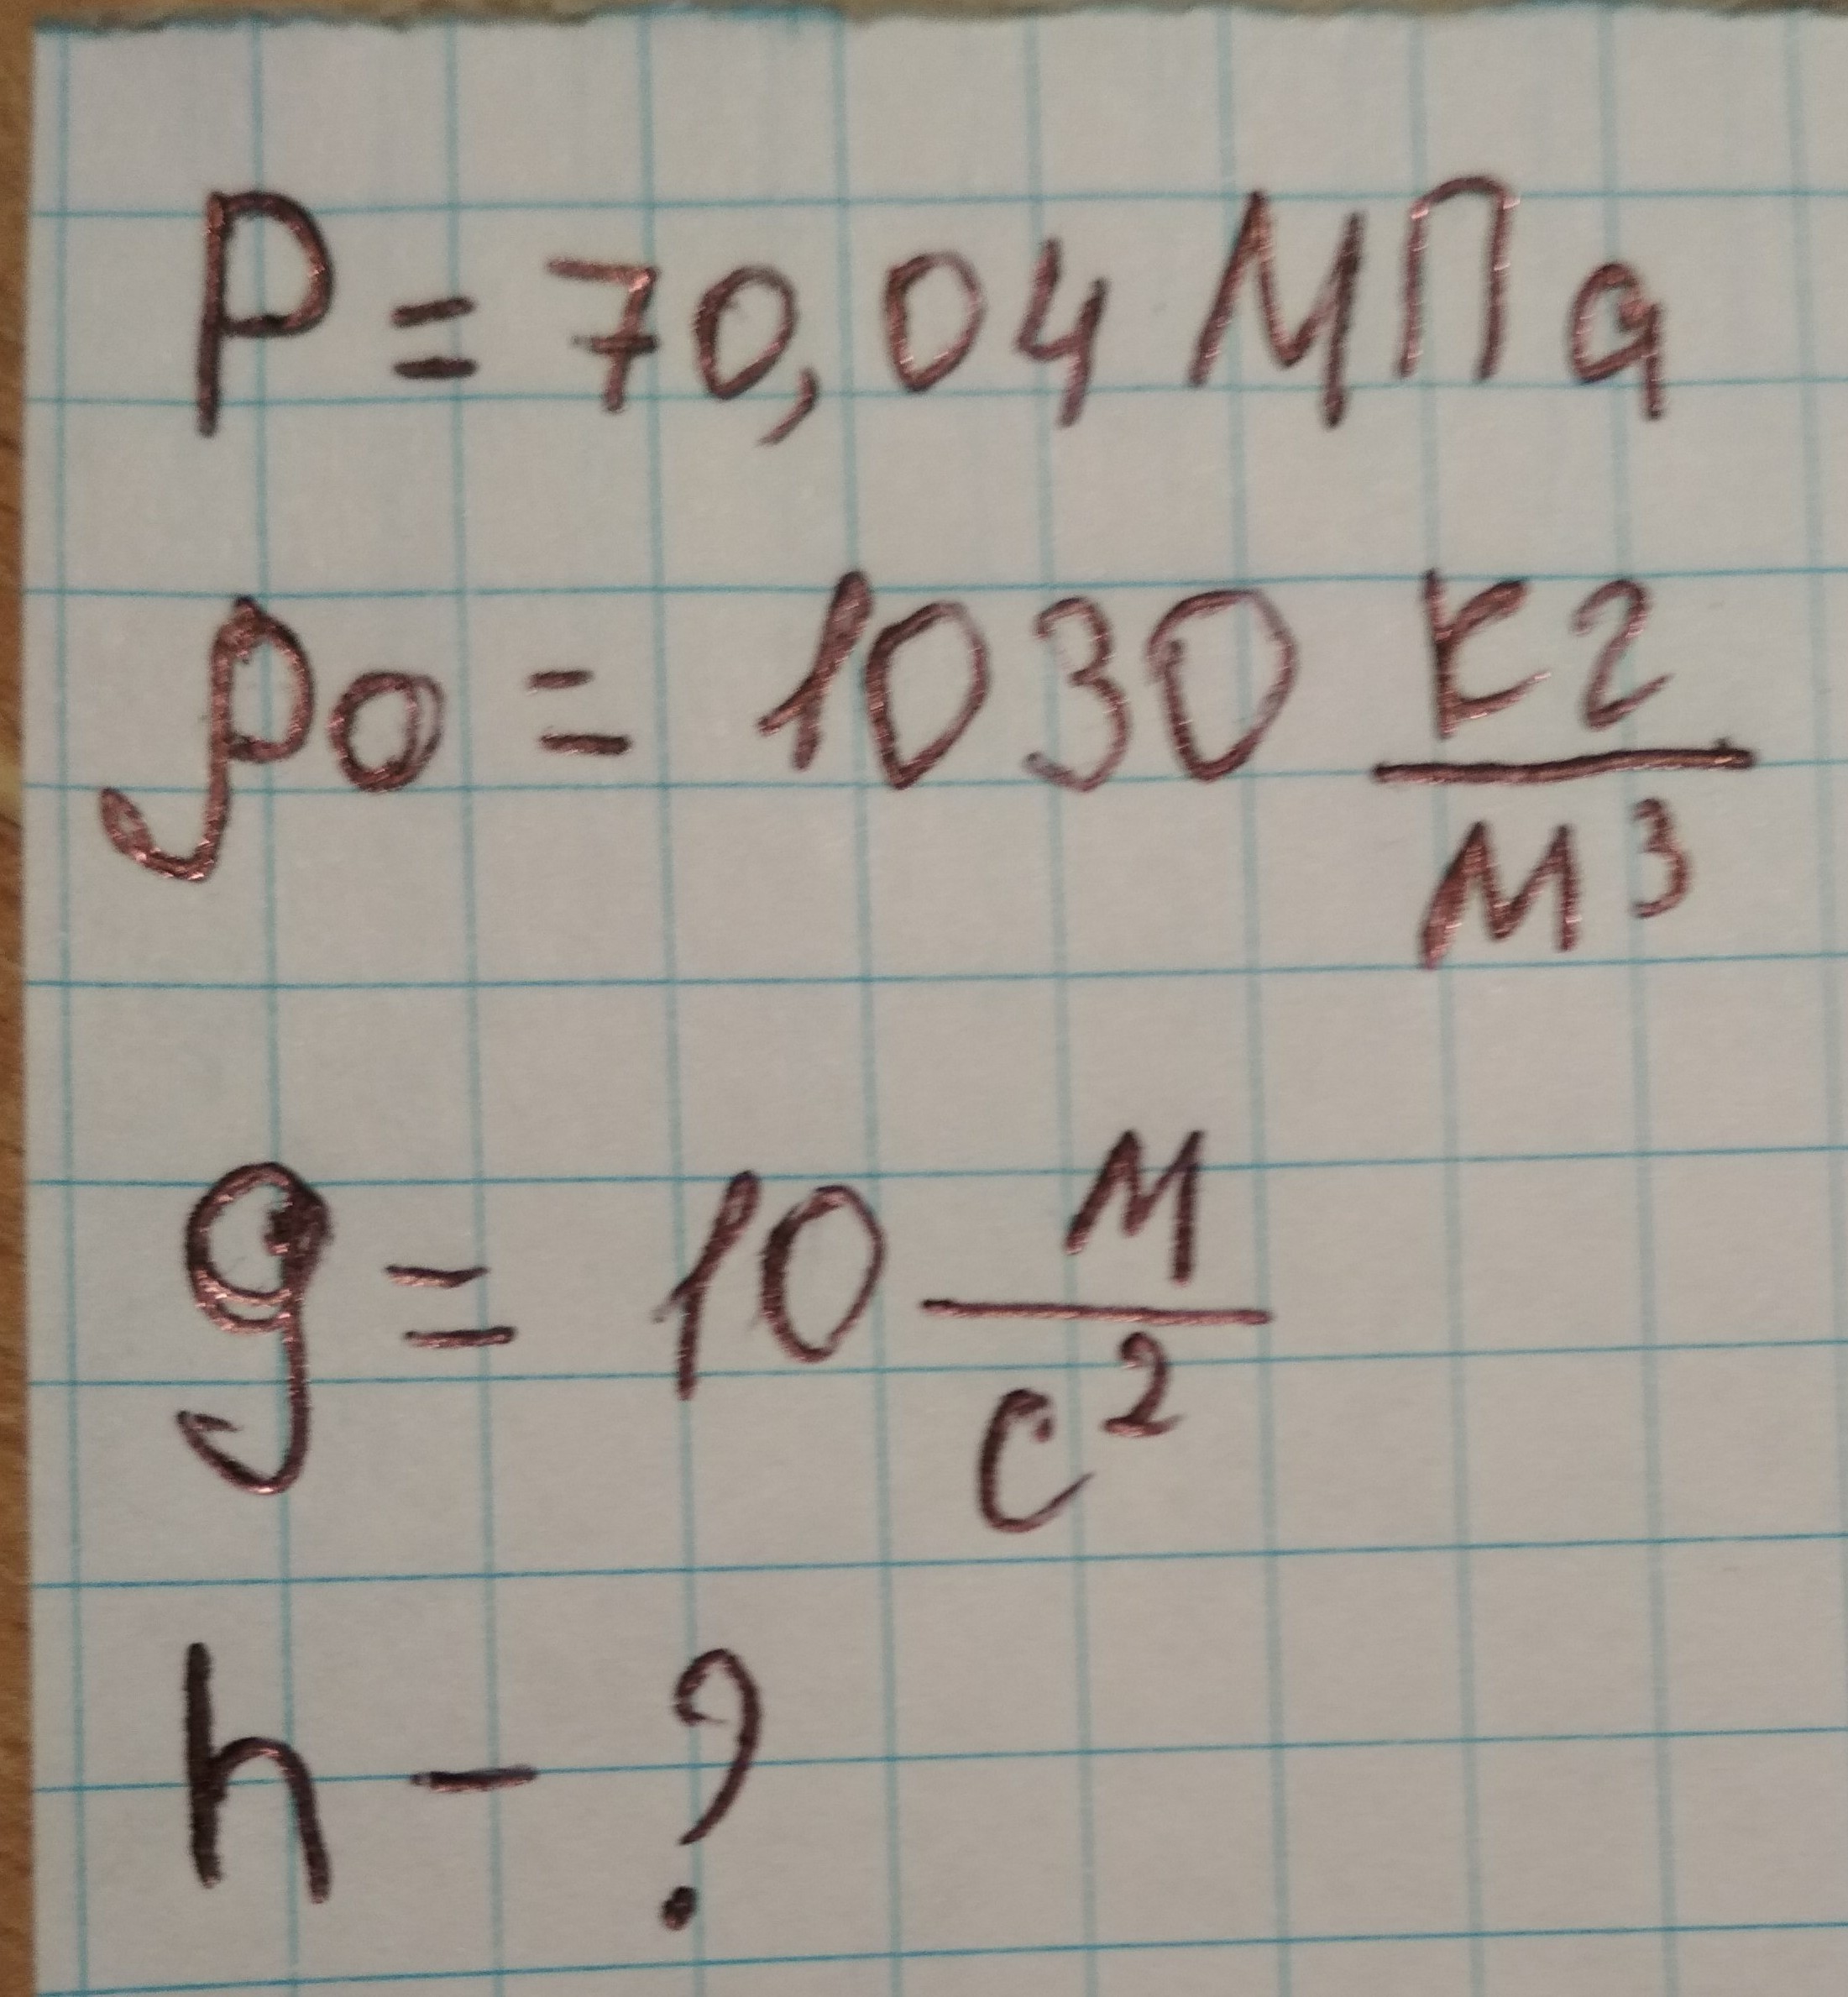 P = 70,04 МПа
ρ0 = 1030 кг/м³
g = 10 м/с²
h - ?